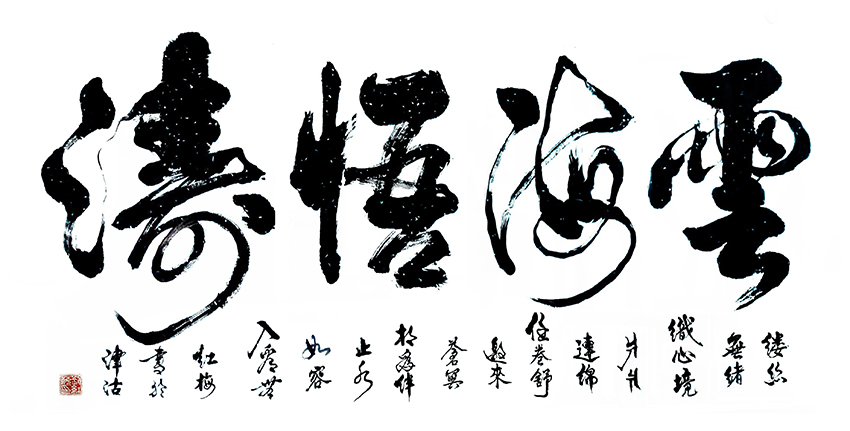 雲海悟濤
縷絲
無緒
織心境
片片
連綿
任卷舒
邀來
蒼冥
為伴
止水
如容
入
紅梅
書於
津沽